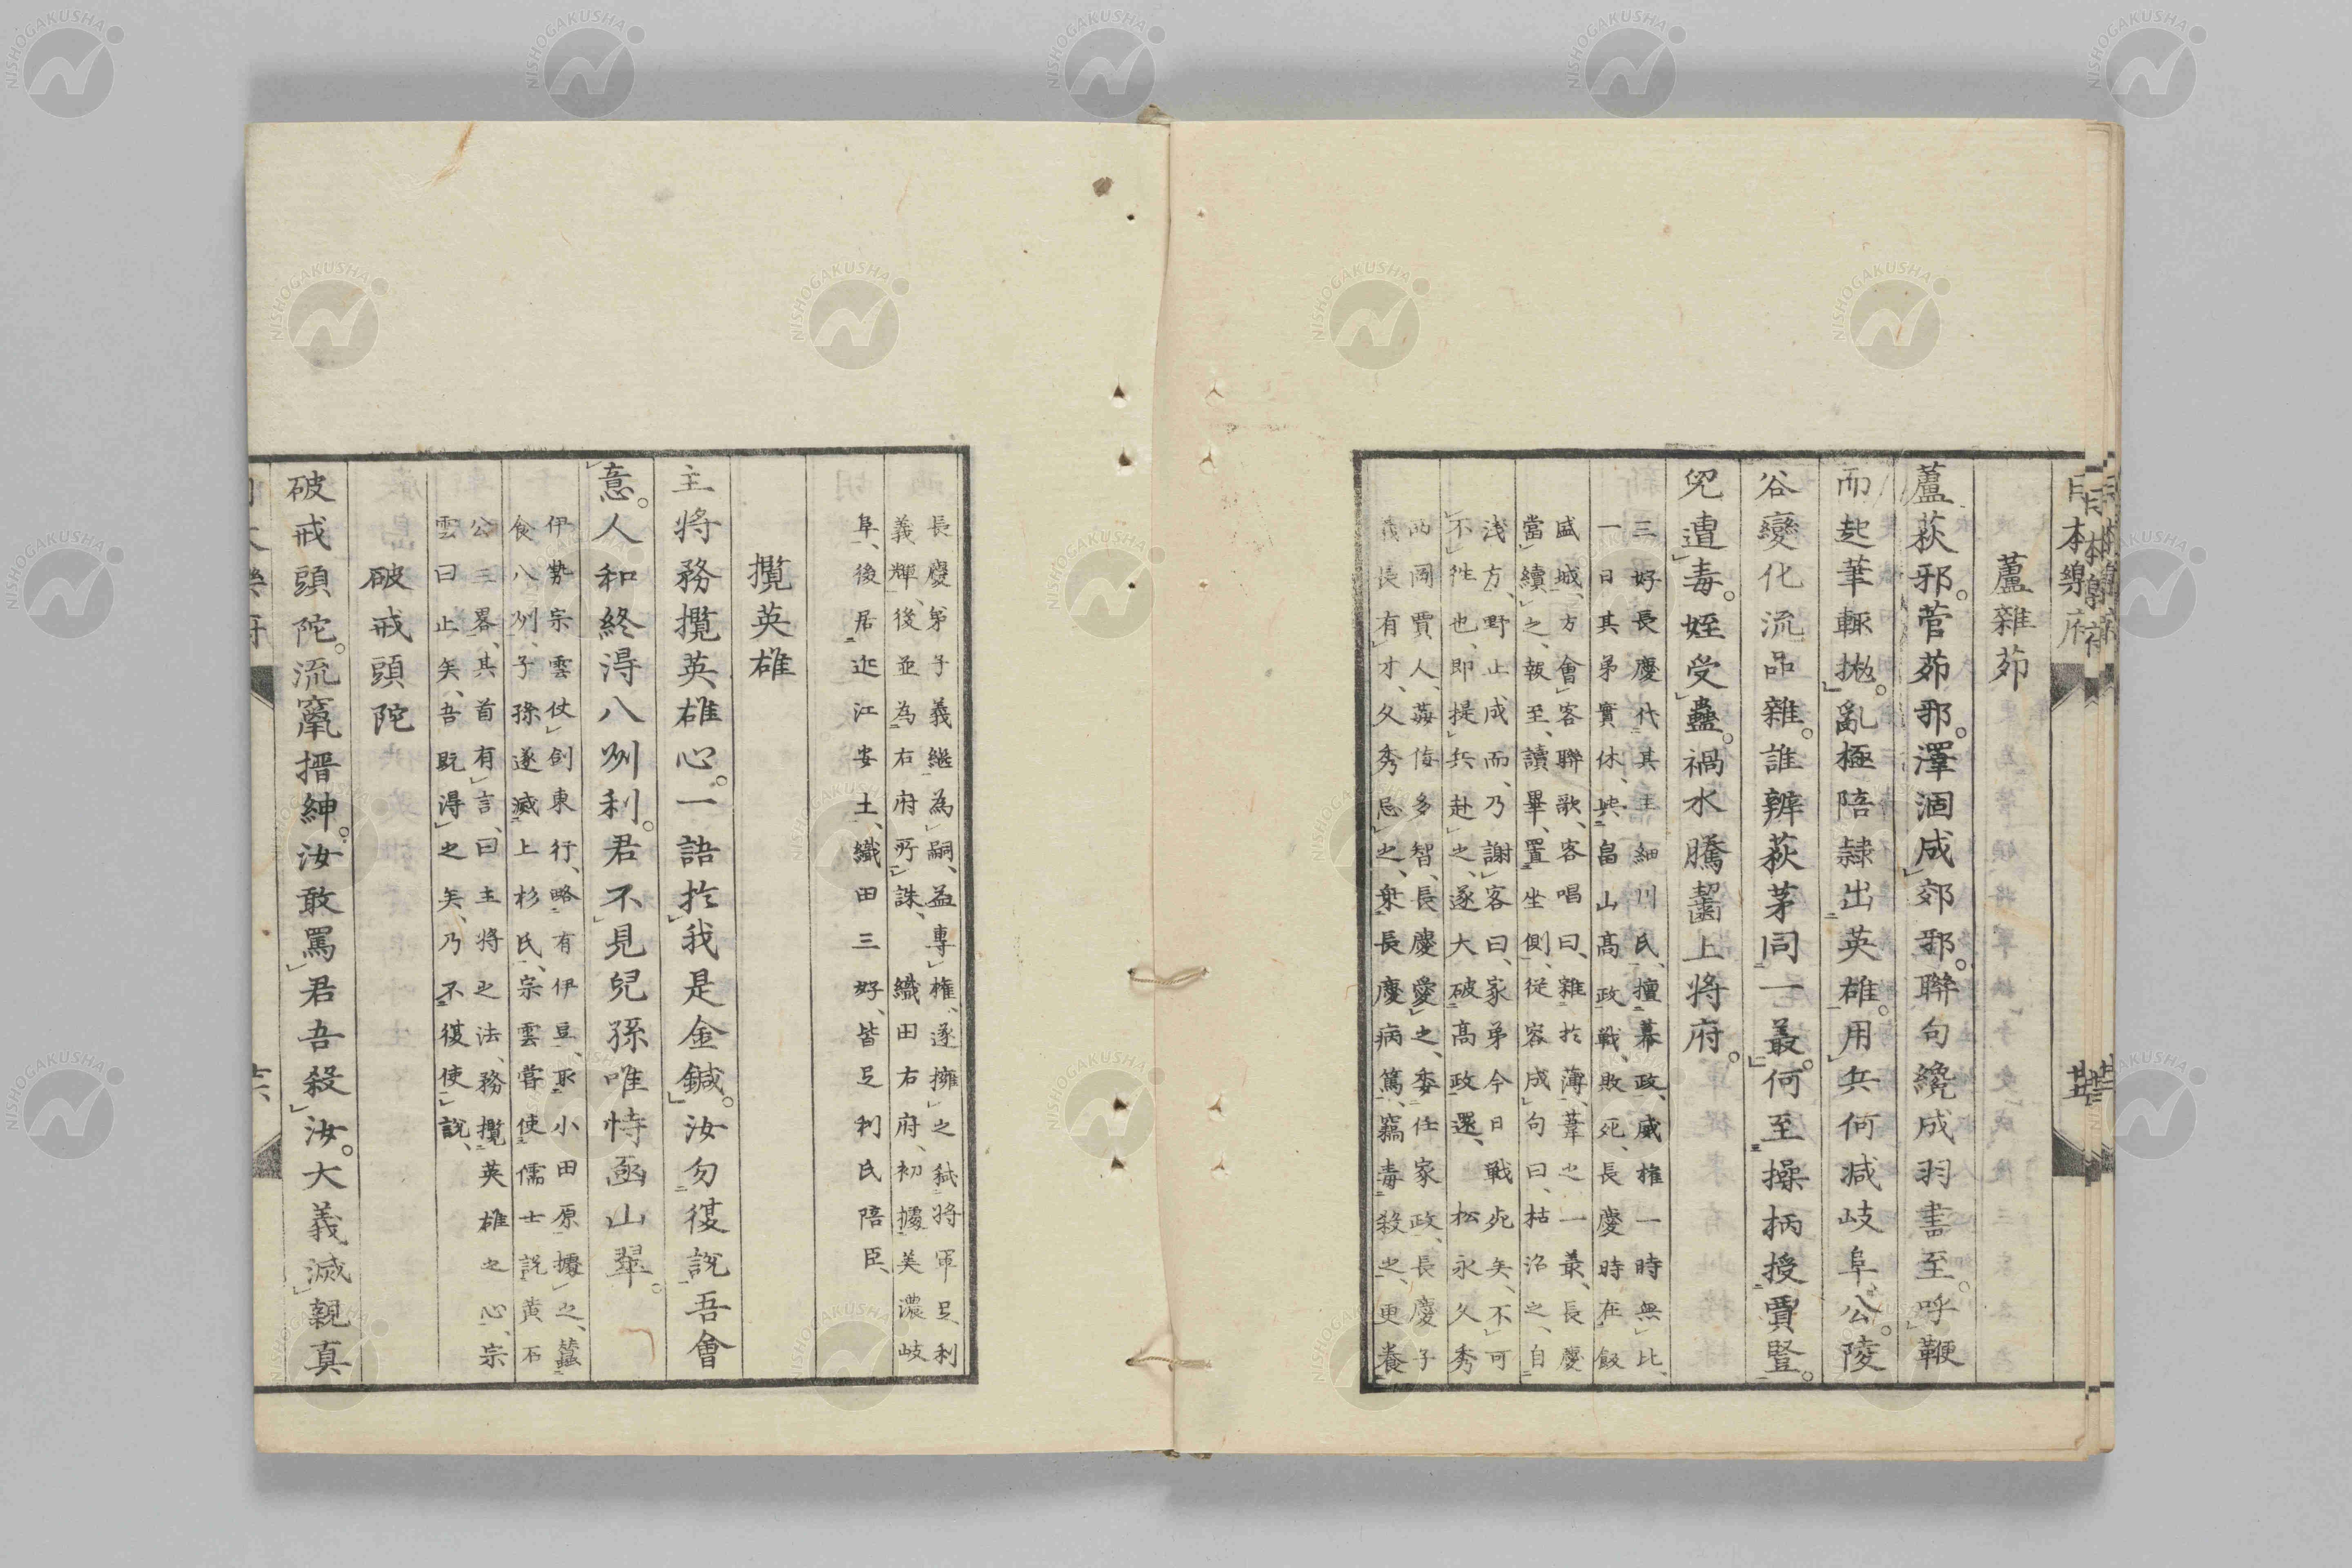 蘆雜茆
蘆萩邪。菅茆邪。澤涸成郊邪。聯句纔成羽書至。呼鞭
而起筆輒拋。亂極陪隸出英雄。用兵何減岐阜公。陵
谷變化流品雜。誰辨萩茅同一叢。何至操柄授賈豎。
兒遭毒。姪受蠱。禍水騰齧上將府。
三好長慶代其主細川氏、擅幕政、威權一時無比、
一日其弟實休、與畠山高政戰、敗死、長慶時在飯
盛城、方會客聯歌、客唱曰、雜於薄葦之一叢、長慶
當續之、報至、讀畢、置坐側、從容成句曰、枯沼之、自
淺方、野止成而、乃謝客曰、家弟今日戰死矣、不可
不往也、即提兵赴之、遂大破高政還、松永久秀
西岡賈人、誨侮多智、長慶愛之、委任家政、長慶子
義長有才、久秀忌之、乘長慶病篤、竊毒殺之、更養
長慶弟子義繼為嗣、益專權、遂擁之弒將軍足利
義輝、後並為右府所誅、織田右府、初據美濃岐
阜、後居近江安土、織田三好、皆足利氏陪臣、
攬英雄
主將務攬英雄心。一語於我是金鍼。汝勿復說吾會
意。人和終得八州利。君不見兒孫唯恃函山犟。
伊勢宗雲仗劍東行、略有伊豆、取小田原據之、蠶
食八州、子孫遂滅上杉氏、宗雲嘗使儒士說黃石
公三畧、其首有言、曰主將之法、務攬英雄之心、宗
雲曰止矣、吾既得之矣、乃不復使說、
破戒頭陀
破戒頭陀。流竄搢紳。汝敢罵君吾殺汝。大義滅親真